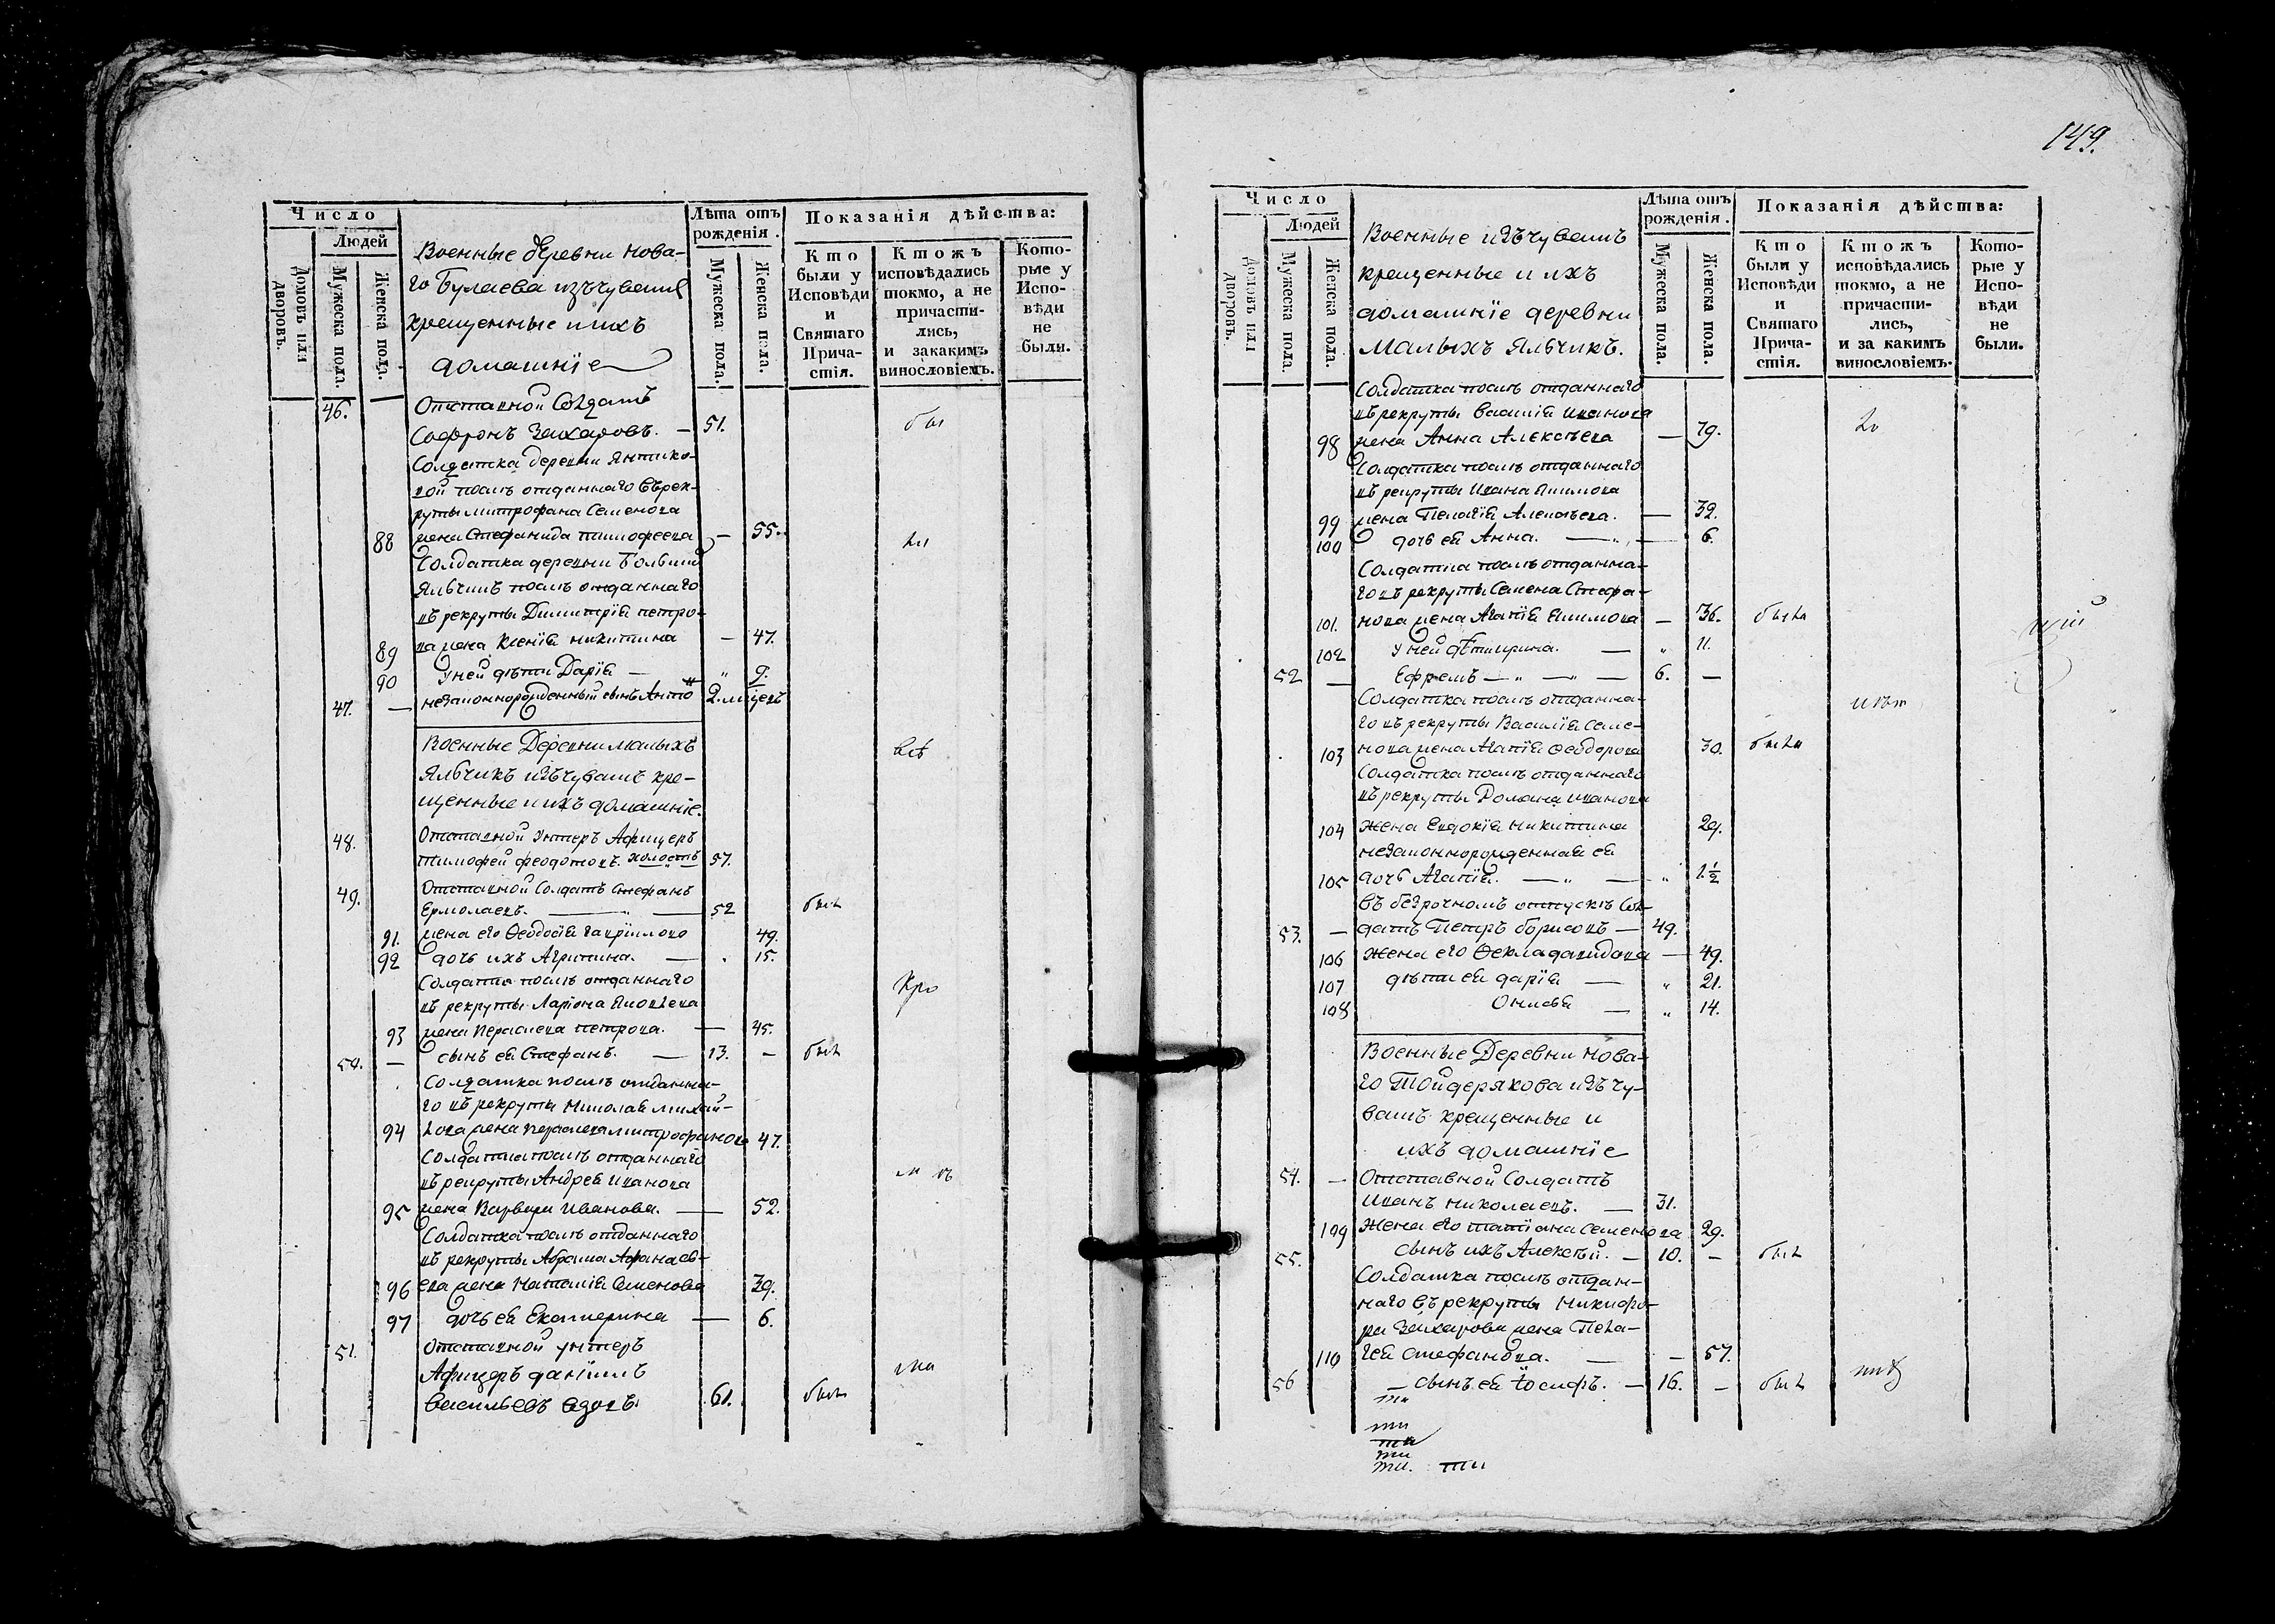 Число
Людей
Домовъ или дворовъ.
Мужеска пола.
Женска пола.
Военные деревни Нова-
го Булаева изъ чувашъ
крещенные и ихъ
домашнїе
Лѣта отъ рожденїя.
Мужеска пола.
Женска пола.
Показанїя дѣйства:
Кто были у Исповѣди и Святаго Прича-стїя.
Ктожъ исповѣдались токмо, а не причасти-лись, и закакимъ винословїемъ.
Кото-рые у Испо-вѣди не были.
46. Отставной Солдатъ
Софронъ Захаровъ. — 51. был
Солдатка деревни Янтико-
вой послѣ отданнаго въ рек-
руты Митрофана Семенова
88 жена Стефанида Тимофеева — 55. ли
Солдатка деревни Большихъ
Яльчикъ послѣ отданнаго
въ рекруты Димитрїя Петро-
89 ва жена Ксенїя Никитина — 47.
90 У ней дѣти Дарїя — " 9.
47. — незаконнорожденный сынъ 2. мѣсяцовъ
Военные Деревни Малыхъ
Яльчикъ изъ чувашъ кре-
щенные и ихъ домашнїе.
всѣ
48. Отставной Унтеръ Афицеръ
Тимофей Феодотовъ. холостъ 57.
49. Отставной Солдатъ Стефанъ
Ермолаевъ. — " — 52 былъ
91. жена его Ѳеодосїя Гаврїилова 49.
92 дочь ихъ Агрипина. — 15.
Солдатка послѣ отданнаго
въ рекруты Ларїона Яковлева
кро
93 жена Параскева Петрова. — 45.
50. — сынъ ея Стефанъ. — 13. — былъ
Солдатка послѣ отданна-
го въ рекруты Николая Михай-
94 лова жена Параскева Митрофанова 47.
Солдатка послѣ отданнаго
въ рекруты Андрея Иванова
95 жена Варвара Иванова. — 52.
Солдатка послѣ отданнаго
въ рекруты Абрама Афанась-
96 ева жена Наталїя Семенова 39.
97 дочь ея Екатерина — 6.
51. Отставной унтеръ
Афицеръ Данїилъ
ма
Васильевъ вдовъ. 61. былъ
149.
Число
Людей
Домовъ или дворовъ.
Мужеска пола.
Женска пола.
Военные изъ чувашъ
крещенные и ихъ
домашнїе деревни
Малыхъ Яльчикъ.
Лѣта отъ рожденїя.
Мужеска пола.
Женска пола.
Показанїя дѣйства:
Кто были у Исповѣди и Святаго Прича-стїя.
Ктожъ исповѣдались токмо, а не причасти-лись, и за какимъ винословїемъ.
Кото-рые у Испо-вѣди не были.
Солдатка послѣ отданнаго
въ рекруты Василїя Иванова
ло
98 жена Анна Алексѣева — 79.
Солдатка послѣ отданнаго
въ рекруты Ивана Якимова
99 жена Пелагїя Алексѣева. — 32.
100 дочь ея Анна. — " — 6.
Солдатка послѣ отданна-
го въ рекруты Семена Стефа-
101. нова жена Агапїя Якимова — 36. была
102 У ней дѣти Ирина. — " 11.
52 — Ефремъ — " — " — 6. —
Солдатка послѣ отданна-
го въ рекруты Василїя Семе-
103 нова жена Агапїя Ѳеодорова 30. была
Солдатка послѣ отданнаго
въ рекруты Романа Иванова
104 Жена Евдокїя Никитина 29.
незаконнорожденная ея
105 дочь Агапїя. — " — " 1½
Въ безрочномъ отпускѣ Сол-
53. — датъ Петръ Борисовъ — 49.
106 Жена его Ѳекла Давидова — 49.
107 дѣти ея Дарїя — " 21.
108 Онисья — " 14.
Военные Деревни Нова-
го Тойдерякова изъ чу-
вашъ крещенные и
ихъ домашнїе
54. — Отставной Солдатъ
Иванъ Николаевъ. — 31.
109 Жена его Татїана Семенова 29.
55. сынъ ихъ Алексѣй. — 10. — былъ
Солдатка послѣ отдан-
наго въ рекруты Никифо-
ра Захарова жена Пела-
110 гея Стефанова. — — 57.
56 — сынъ ея Їосифъ. — 16. — былъ